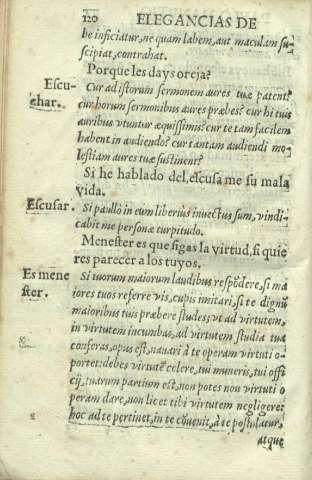 120 ELEGANCIAS DE
be inficiatur, ne quam labem, aut maculam su-
scipiat, contrahat.
Porque les days oreja?
Escu-
char.
Cur ad istorum sermonem aures tuæ patent?
cur horum sermonibus aures præbes? cur hi tuis
auribus vtuntur æquissimis? cur te tam facilem
habent in audiendo? cur tantam audiendi mo-
lestiam aures tuæ sustinent?
Si he hablado del, escusa me su mala
vida.
Escusar.
Si paullo in eum liberiùs inuectus sum, vindi-
cabit me personæ turpitudo.
Menester es que sigas la virtud, si quie
res parecer a los tuyos.
Es mene
ster.
Si tuorum maiorum laudibus respõdere, si ma
iores tuos referre vis, cupis imitari, si te dignũ
maioribus tuis præbere studes; vt ad virtutem,
in virtutem incumbas, ad virtutem studia tua
conferas, opus est, nauari à te operam virtuti o-
portet: debes virtutẽ colere, tui muneris, tui offi
cij, tuarum partium est, non potes non virtuti o
peram dare, non licet tibi virtutem negligere:
hoc ad te pertinet, in te cõuenit, à te postulatur,
atque